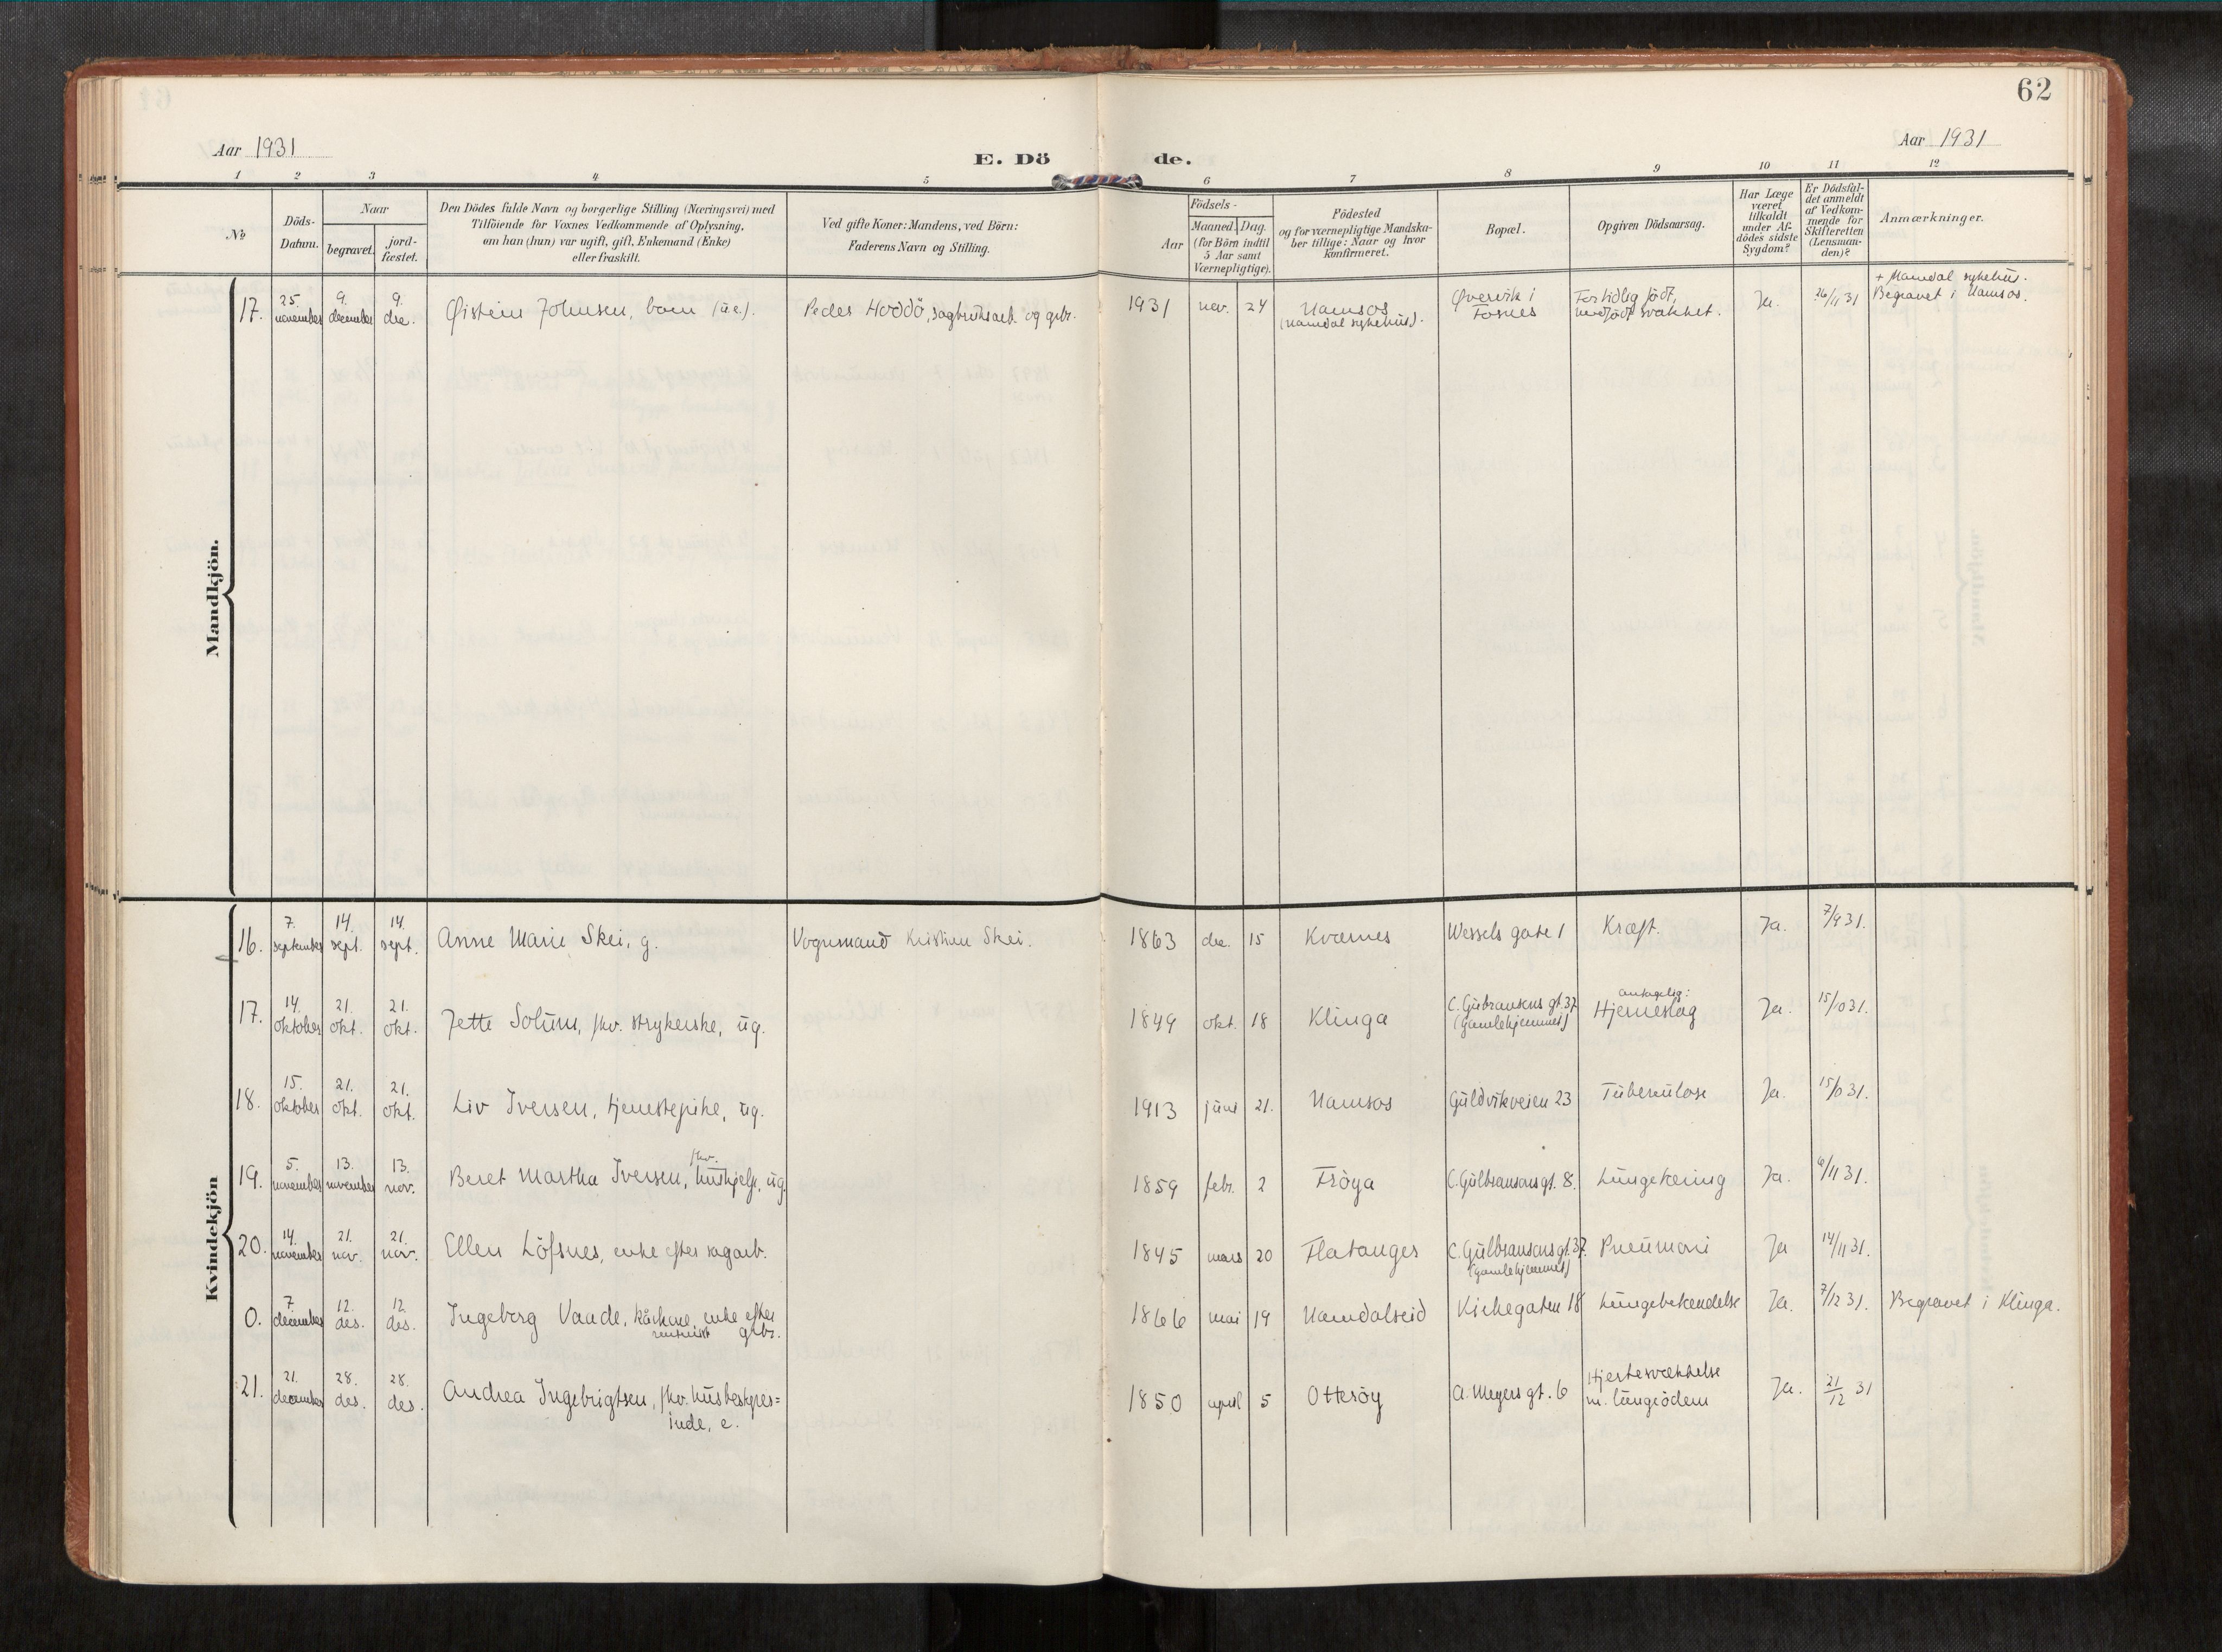 62
Aar 1931
E. Döde.
Aar 1931
1 2 3 4 5 6 7 8 9 10 11 12
No
Döds-Datum.
Naar
begravet.
jord-fæstet.
Den Dödes fulde Navn og borgerlige Stilling (Næringsvei) med
Tilföiende for Voxnes Vedkommende af Oplysning,
om han (hun) var ugift, gift, Enkemand (Enke)
eller fraskilt.
Ved gifte Koner: Mandens, ved Börn:
Faderens Navn og Stilling.
Födsels-
Aar
Maaned. Dag.
(for Börn indtil
5 Aar samt
Værnepligtige).
Födested
og for værnepligtige Mandska-
ber tillige: Naar og hvor
konfirmeret.
Bopæl.
Opgiven Dödsaarsag.
Har Læge
været
tilkaldt
under Af-
dödes sidste
Sygdom?
Er Dödsfal-
det anmeldt
af Vedkom-
mende for
Skifteretten
(Lensman-
den)?
Anmærkninger.
Mandkjön.
17. 25. november 9. december 9. dec. Øistein Johnsen, barn (u.e.). Peder Hoddö, sagbruksarb. og grbr. 1931 nov. 24 Namsos (Namdal sykehus). Øvervik i Fosnes For tidlig födt, medfödt svakhet. Ja. 26/11 31 + Namdal sykehus. Begravet i Namsos.
Kvindekjön
16. 7. september 14. sept. 14. sept. Anne Marie Skei, g. Vognmand Kristian Skei. 1863 dec. 15 Kvernes Wessels gate 1 Kræft. Ja. 7/9 31.
17. 14. oktober 21. okt. 21. okt. Jette Solum, fhv. strykerske, ug. 1849 okt. 18 Klinga C. Gulbransons gt. 37 (Gamlehjemmet) antagelig: Hjerneslag Ja. 15/10 31.
18. 15. oktober 21. okt. 21. okt. Liv Iversen, tjenestepike, ug. 1913 juni 21. Namsos Guldvikveien 23 Tuberkulose Ja. 15/10 31.
19. 5. november 13. november 13. nov. Beret Martha Iversen, fhv. hushjelp, ug. 1859 febr. 2 Fröya C. Gulbransons gt. 8. Lungekering Ja. 6/11 31.
20. 14. november 21. nov. 21. nov. Ellen Löfsnes, enke efter sagarb. 1845 mars 20 Flatanger C. Gulbransons gt. 37. (Gamlehjemmet) Pneumoni Ja 14/11 31.
0. 7. december 12. des. 12. des. Ingeborg Vaade, kårkone, enke efter grbr. 1866 mai 19 Namdalseid Kirkegaten 18 Lungebetændelse Ja. 7/12 31. Begravet i Klinga.
21. 21. december 28. des. 28. des. Andrea Ingebrigtsen, fhv. husbestyres=
inde, e. 1850 april 5 Otteröy A. Meyers gt. 6 Hjertesvækkelse m. lungeödem Ja. 21/12 31